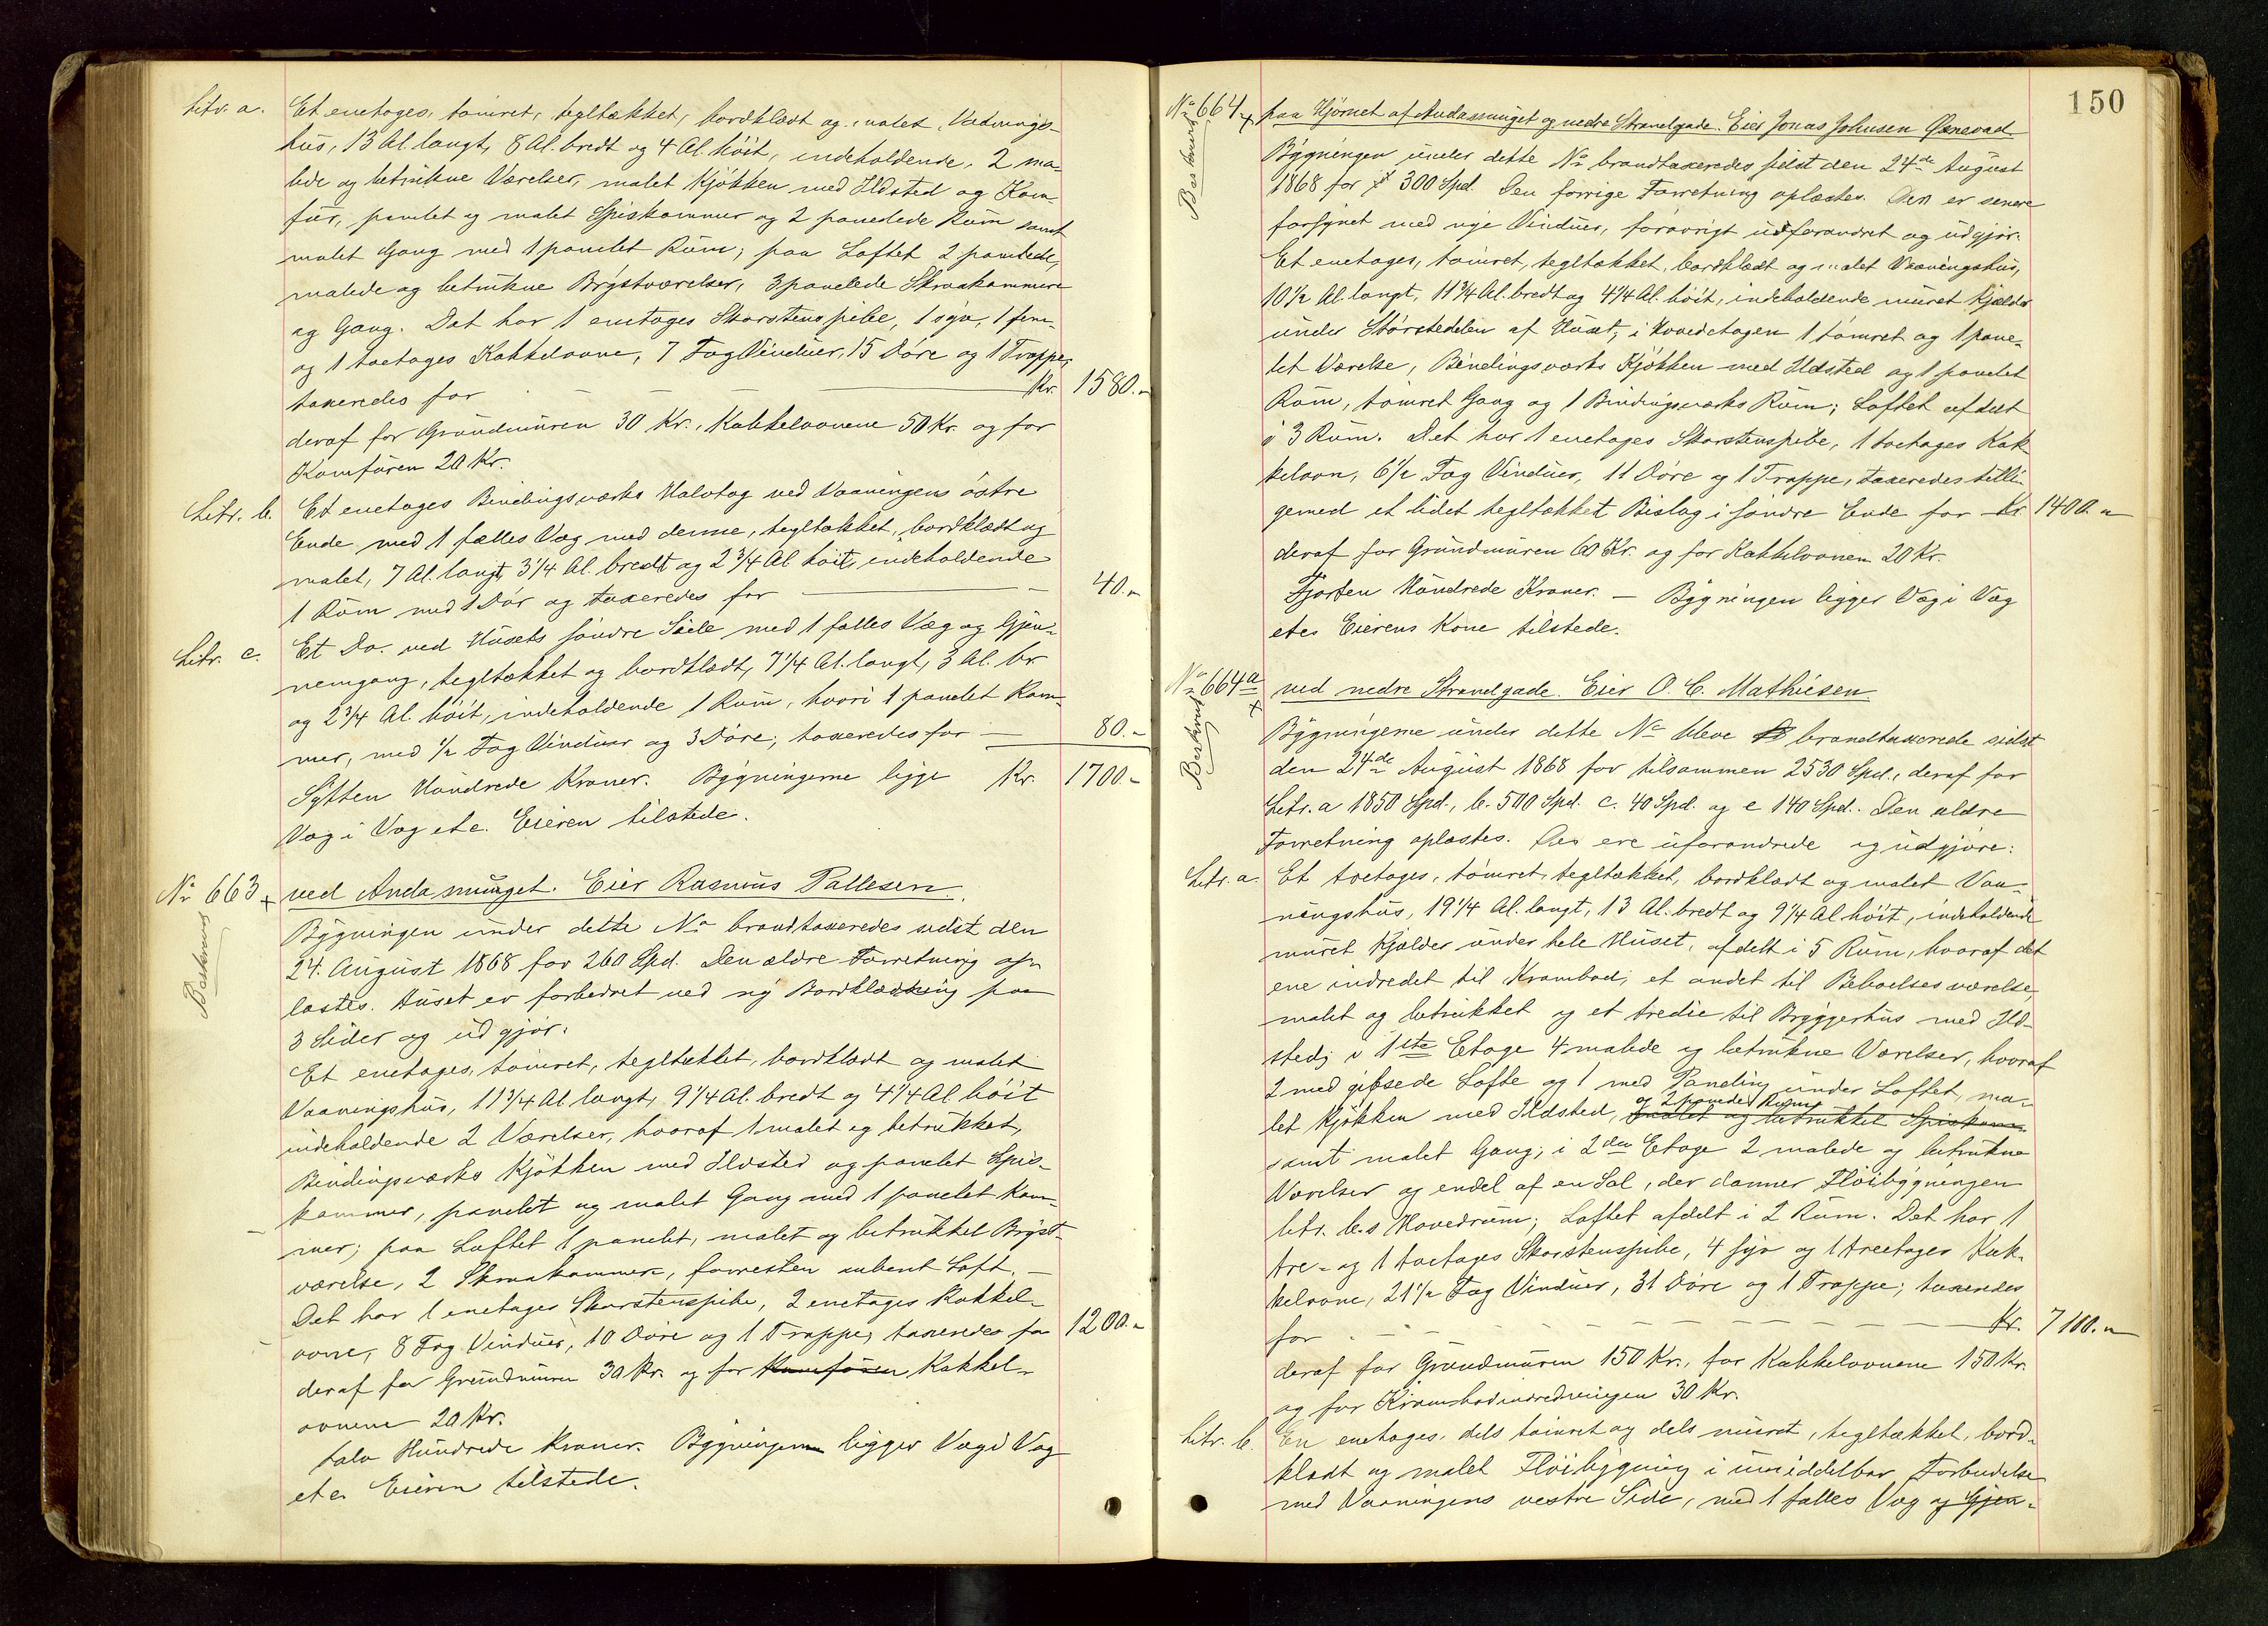 Litr. a. Et enetages, tømret, tegltækket, bordklædt og malet Vaanings-
hus, 13 Al. langt, 8 Al. bredt og 4 Al. höit, indeholdende 2 ma-
lede og betrukne Værelser, malet Kjökken med Ildsted og Kom-
für, panelet og malet Spiskammer og 2 panelede Rum samt
malet Gang med 1 panelet Rum; paa Loftet 2 panelede,
malede og betrukne Brÿstværelser, 3 panelede Skraakammere
og Gang. Det har 1 enetages Skorstenspibe, 1 syv, 1 fem-
og 1 toetages Kakkelovne, 7 Fag Vinduer, 15 Döre og 1 Trappe,
taxeredes for Kr. 1580.-
deraf for Grundmuren 30 Kr., Kakkelovnene 50 Kr. og for
Komfüren 20 Kr.
Litr. b. Et enetages Bindingsværks Halvtag ved Vaaningens östre
Ende med 1 fælles Væg med denne, tegltækket, bordklædt og
malet, 7 Al. langt, 3 1/4 Al. bredt og 2 3/4 Al. höit, indeholdende
1 Rum med 1 Dör og taxeredes for 40.-
Litr. c. Et Do. ved Husets söndre Side med 1 fælles Væg og Gjen-
nemgang, tegltækket og bordklædt, 7 1/4 Al. langt, 3 Al. br.
og 2 3/4 Al. höit, indeholdende 1 Rum, hvori 1 panelet Kam-
mer, med 1/2 Fag Vinduer og 3 Döre, taxeredes for 80.-
Sÿtten Hundrede Kroner. Bÿgningerne ligge Kr. 1700.-
Væg i Væg etc. Eieren tilstede.
No 663 + ved Andasmuget. Eier Rasmus Pallesen.
Bÿgningen under dette No brandtaxeredes sidst den
24. August 1868 for 260 Spd. Den ældre Forretning op-
læstes. Huset er forbedret ved nÿ Bordklædning paa
3 Sider og udgjör:
Et enetages, tømret, tegltækket, bordklædt og malet
Vaaningshus, 11 3/4 Al. langt, 9 1/4 Al. bredt og 4 1/4 Al. höit
indeholdende 2 Værelser, hvoraf 1 malet og betrukket,
Bindingsværks Kjökken med Ildsted og panelet Spis-
kammer, panelet og malet Gang med 1 panelet Kam-
mer; paa Loftet 1 panelet, malet og betrukket Brÿst-
værelse, 2 Skraakammere, forresten aabent Loft. -
Det har 1 enetages Skorstenspibe, 2 enetages Kakkel-
ovne, 8 Fag Vinduer, 10 Döre og 1 Trappe, taxeredes for 1200.-
deraf for Grundmuren 30 Kr. og for Komfüren Kakkel-
ovnene 20 Kr.
Tolv Hundrede Kroner. Bÿgningen ligger Væg i Væg
etc. Eieren tilstede.
150
No 664 + paa Hjörnet af Andasmuget og nedre Strandgade. Eier Jonas Johnsen Ognevad
Bÿgningen under dette No brandtaxeredes sidst den 24de August
1868 for 300 Spd. Den forrige Forretning oplæstes. Den er senere
forsÿnet med nye Vinduer, forövrigt uforandret og udgjör:
Et enetages, tømret, tegltækket, bordklædt og malet Vaaningshus,
10 1/2 Al. langt, 11 3/4 Al. bredt og 4 1/4 Al. höit, indeholdende muret Kjælder
under Störstedelen af Huset; i Hovedetagen 1 tømret og 1 pane-
let Værelse, Bindingsværks Kjökken med Ildsted og 1 panelet
Rum, tømret Gang og 1 Bindingsværks Rum; Loftet afdelt
i 3 Rum. Det har 1 enetages Skorstenspibe, 1 toetages Kak-
kelovn, 6 1/2 Fag Vinduer, 11 Döre og 1 Trappe, taxeredes tilli-
gemed et lidet tegltækket Bislag i söndre Ende for Kr. 1400.-
deraf for Grundmuren 60 Kr. og for Kakkelovnen 20 Kr.
Fjorten Hundrede Kroner. - Bÿgningen ligger Væg i Væg
etc. Eierens Kone tilstede.
No 664a + ved nedre Strandgade. Eier O. C. Mathiesen
Bÿgningerne under dette No bleve brandtaxerede sidst
den 24de August 1868 for tilsammen 2530 Spd., deraf for
Litr. a 1850 Spd., b. 500 Spd. c. 40 Spd. og e 140 Spd. Den ældre
Forretning oplæstes. De ere uforandrede og udgjöre:
Litr. a. Et toetages, tømret, tegltækket, bordklædt og malet Vaa-
ningshus, 19 1/4 Al. langt, 13 Al. bredt og 9 1/4 Al. höit, indeholdende
muret Kjælder under hele Huset, afdelt i 5 Rum, hvoraf det
ene indredet til Krambod, et andet til Beboelsesværelse,
malet og betrukket og et tredie til Brÿggerhus med Ild-
sted; i 1ste Etage 4 malede og betrukne Værelser, hvoraf
2 med gibsede Lofte og 1 med Paneling under Loftet, ma-
let Kjökken med Ildsted, og 2 panelede Rum malet og betrukket Spiskam
samt malet Gang; i 2den Etage 2 malede og betrukne
Værelser og endel af en Sal, der danner Flöibÿgningen
Litr. b.s Hovedrum; Loftet afdelt i 2 Rum. Det har 1
tre- og 1 toetages Skorstenspibe, 4 syv og 1 treetages Kak-
kelovne, 21 1/2 Fag Vinduer, 31 Döre og 1 Trappe; taxeredes
for Kr. 7100.-
deraf for Grundmuren 150 Kr., for Kakkelovnene 150 Kr.
og for Krambodindredningen 30 Kr.
Litr. b. En enetages, dels tømret og dels muret, tegltækket, bord-
klædt og malet Flöibÿgning i umiddelbar Forbindelse
med Vaaningens vestre Side, med 1 fælles Væg og Gjen-